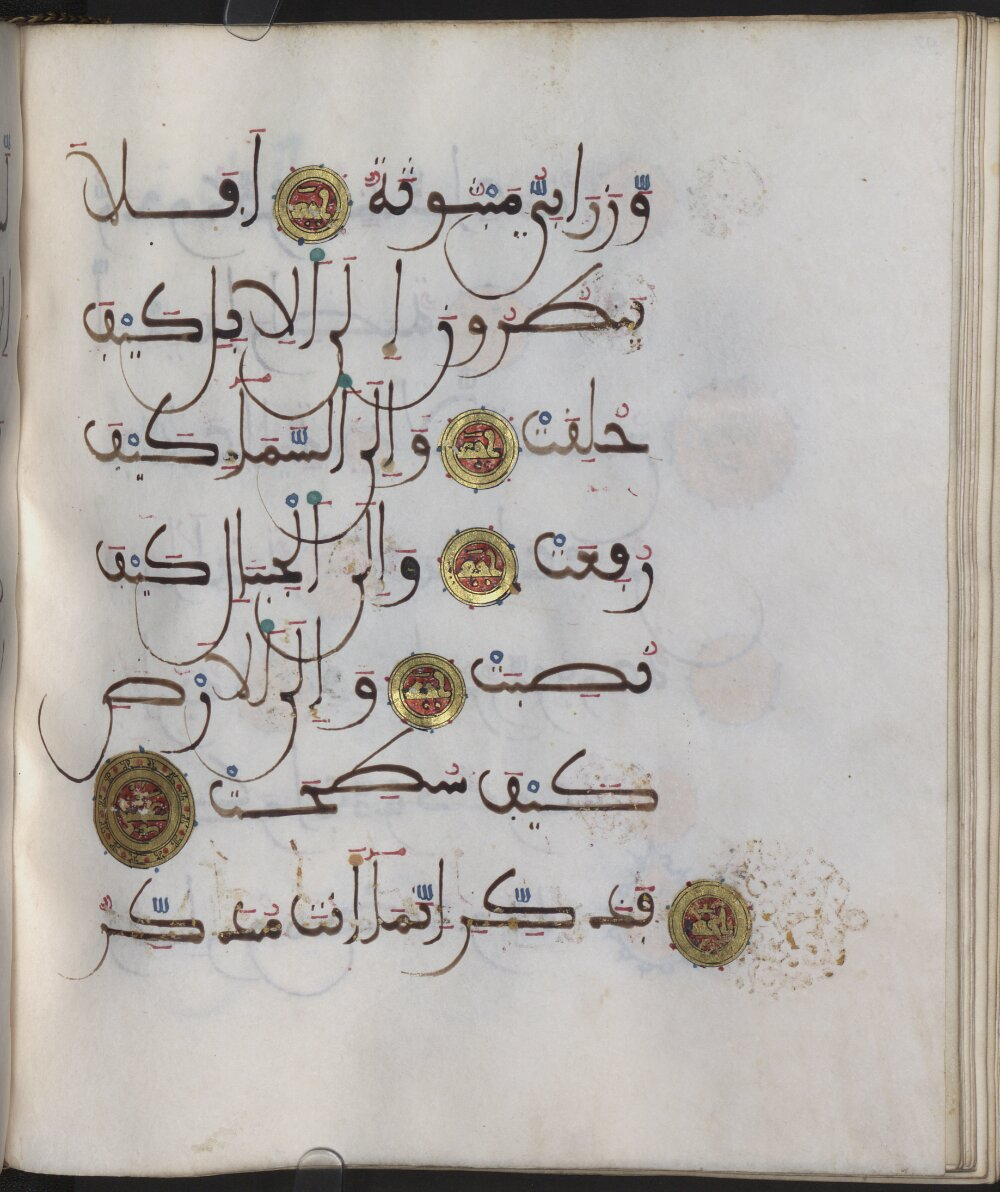 وَزَرَابِيُّ مَبْثُوثَةٌ اَفَلَا
يَنظُرُونَ إِلَى اَلِابِلِ كَيْفَ
خُلِقَتْ وَإِلَى اَلسَّمَآءِ كَيْفَ
رُفِعَتْ وَإِلَى اَلْجِبَالِ كَيْفَ
نُصِبَتْ وَإِلَى اَلَارْضِ
كَيْفَ سُطِحَتْ
فَذَكِّرِ اِنَّمَآ أَنتَ مُذَكِّرٌ